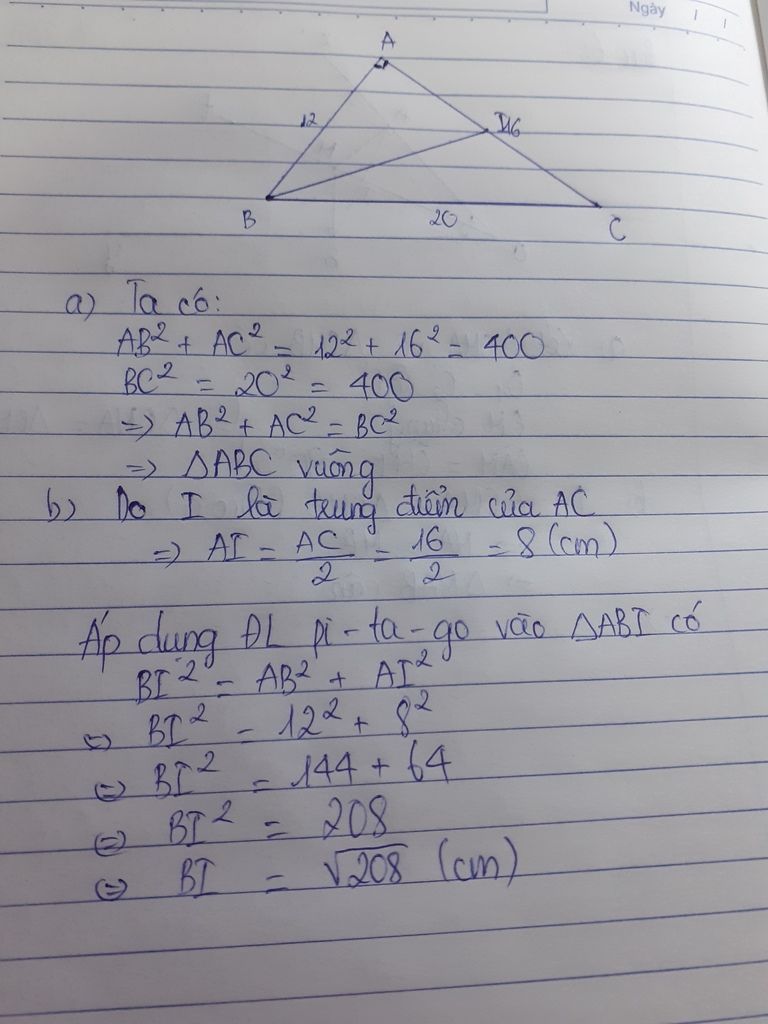 Ngày
A
12
I 16
B
20
C
a) Ta có:
AB² + AC² = 12² + 16² = 400
BC² = 20² = 400
=> AB² + AC² = BC²
=> ΔABC vuông
b) Do I là trung điểm của AC
=> AI = AC/2 = 16/2 = 8 (cm)
Áp dụng ĐL pi-ta-go vào ΔABI có
BI² = AB² + AI²
<=> BI² = 12² + 8²
<=> BI² = 144 + 64
<=> BI² = 208
<=> BI = √208 (cm)